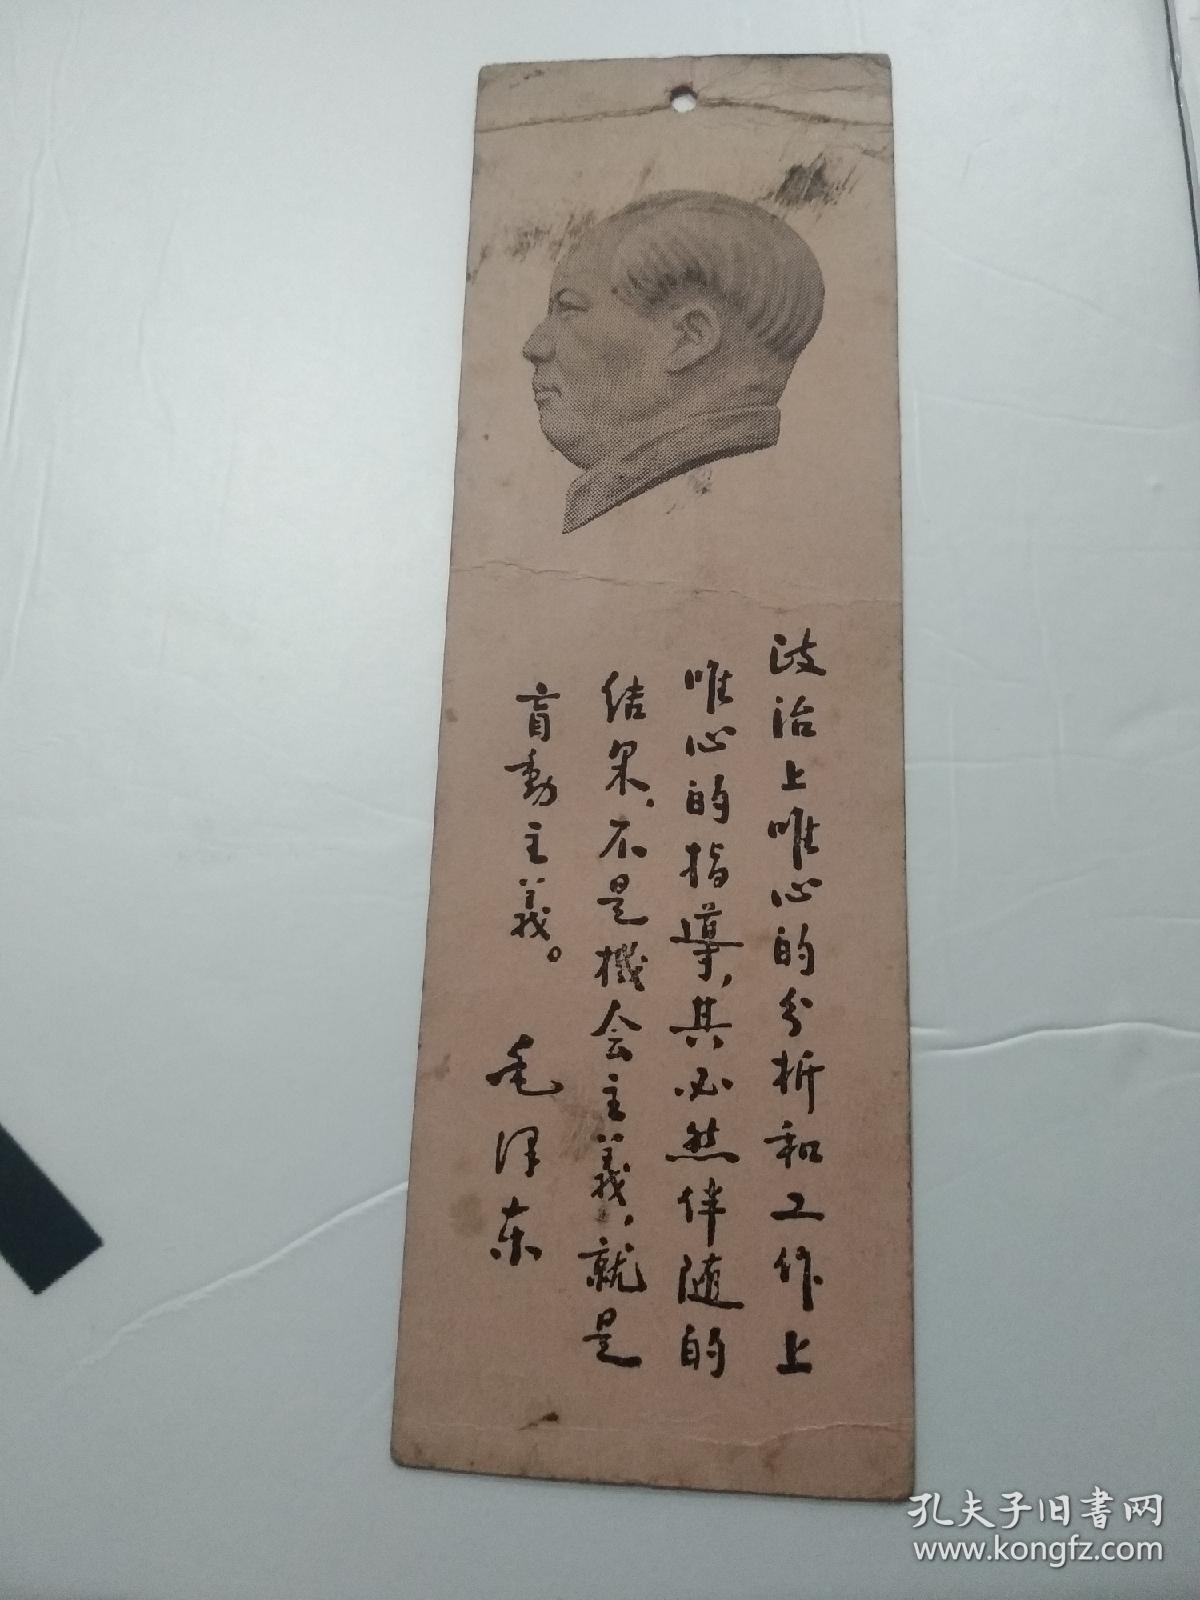 政治上唯心的分析和工作上
唯心的指導，其必然伴随的
结果，不是機会主義，就是
盲動主義。
毛泽东
孔夫子旧書网
www.kongfz.com